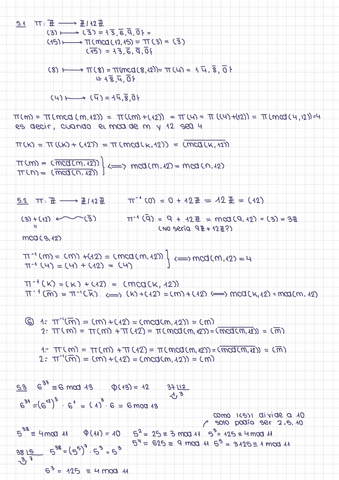 5.1 π: ℤ ⟶ ℤ/12ℤ
(3) ⟼ (3̄) = {3̄, 6̄, 9̄, 0̄} =
(15) ⟼ π(mcd(12,15)) = π(3) = (3̄)
(15̄) = {3̄, 6̄, 9̄, 0̄}
(8) ⟼ π(8) = π(mcd(8,12)) = π(4) = {4̄, 8̄, 0̄}
(4) ⟼ (4̄) = {4̄, 8̄, 0̄}
π(m) = π(mcd(m,12)) = π((m)+(12)) = π(4) = π((4)+(12)) = π(mcd(4,12)) = 4
es decir, cuando el mcd de m y 12 sea 4
π(k) = π((k)+(12)) = π(mcd(k,12)) = (mcd(k,12))
π(m) = (mcd(m,12))
π(n) = (mcd(n,12)) } ⟺ mcd(m,12) = mcd(n,12)
5.2 π: ℤ ⟶ ℤ/12ℤ π⁻¹(0) = 0 + 12ℤ = 12ℤ = (12)
(3)+(12) ⟵ (3̄) π⁻¹(9̄) = 9 + 12ℤ = mcd(9,12) = (3) = 3ℤ
(no sería 9ℤ + 12ℤ?)
mcd(3,12)
π⁻¹(m̄) = (m)+(12) = (mcd(m,12))
π⁻¹(4) = (4)+(12) = (4) } ⟺ mcd(m,12) = 4
π⁻¹(k̄) = (k)+(12) = (mcd(k,12))
π⁻¹(m̄) = π⁻¹(k̄) ⟺ (k)+(12) = (m)+(12) ⟺ mcd(k,12) = mcd(m,12)
1- π⁻¹(m̄) = (m)+(12) = (mcd(m,12)) = (m)
2- π(m) = π(m)+π(12) = π(mcd(m,12)) = (mcd(m,12)) = (m̄)
1- π(m) = π(m)+π(12) = π(mcd(m,12)) = (mcd(m,12)) = (m̄)
2- π⁻¹(m̄) = (m)+(12) = (mcd(m,12)) = (m)
5.3 6³⁷ ≡ 6 mod 13 φ(13) = 12 37 |12
6³⁷ = (6¹²)³ · 6¹ = (1)³ · 6 = 6 mod 13
como |(5)| divide a 10
solo podía ser 2, 5, 10
5³⁸ ≡ 4 mod 11 φ(11) = 10 5² = 25 ≡ 3 mod 11 5³ = 125 ≡ 4 mod 11
5⁴ = 625 ≡ 9 mod 11 5⁵ = 3125 ≡ 1 mod 11
38 |5 5³⁸ = (5⁵)⁷ · 5³ = 5³
5³ = 125 ≡ 4 mod 11